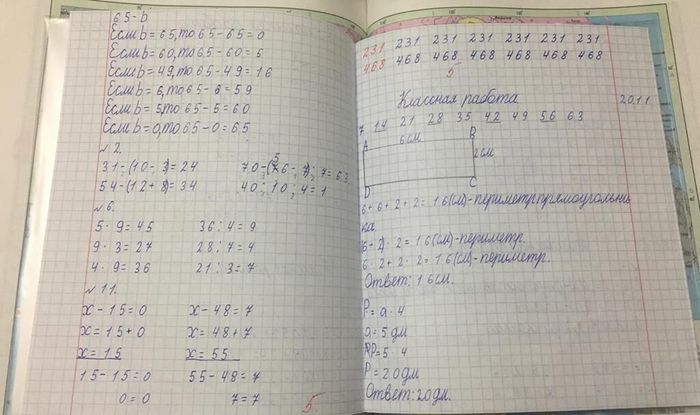 65-b
Если b=65, то 65-65=0
Если b=60, то 65-60=5
Если b=49, то 65-49=16
Если b=6, то 65-6=59
Если b=5, то 65-5=60
Если b=0, то 65-0=65
№2.
31-(10-3)=24 70-(56-49):7=63
54-(12+8)=34 40:10:4=1
№6.
5·9=45 36:4=9
9·3=27 28:7=4
4·9=36 21:3=7
№11.
x-15=0 x-48=7
x=15+0 x=48+7
x=15 x=55
15-15=0 55-48=7
0=0 7=7
5.
231 231 231 231 231 231 231
468 468 468 468 468 468 468
5
Классная работа. 20.11
7 14 21 28 35 42 49 56 63
A 6см B
2см
D C
6+6+2+2=16(см)-периметр прямоугольни
ка
(6+2)·2=16(см)-периметр.
6·2+2·2=16(см)-периметр.
Ответ: 16см.
P=a·4
a=5дм
P=5·4
P=20дм
Ответ: 20дм.